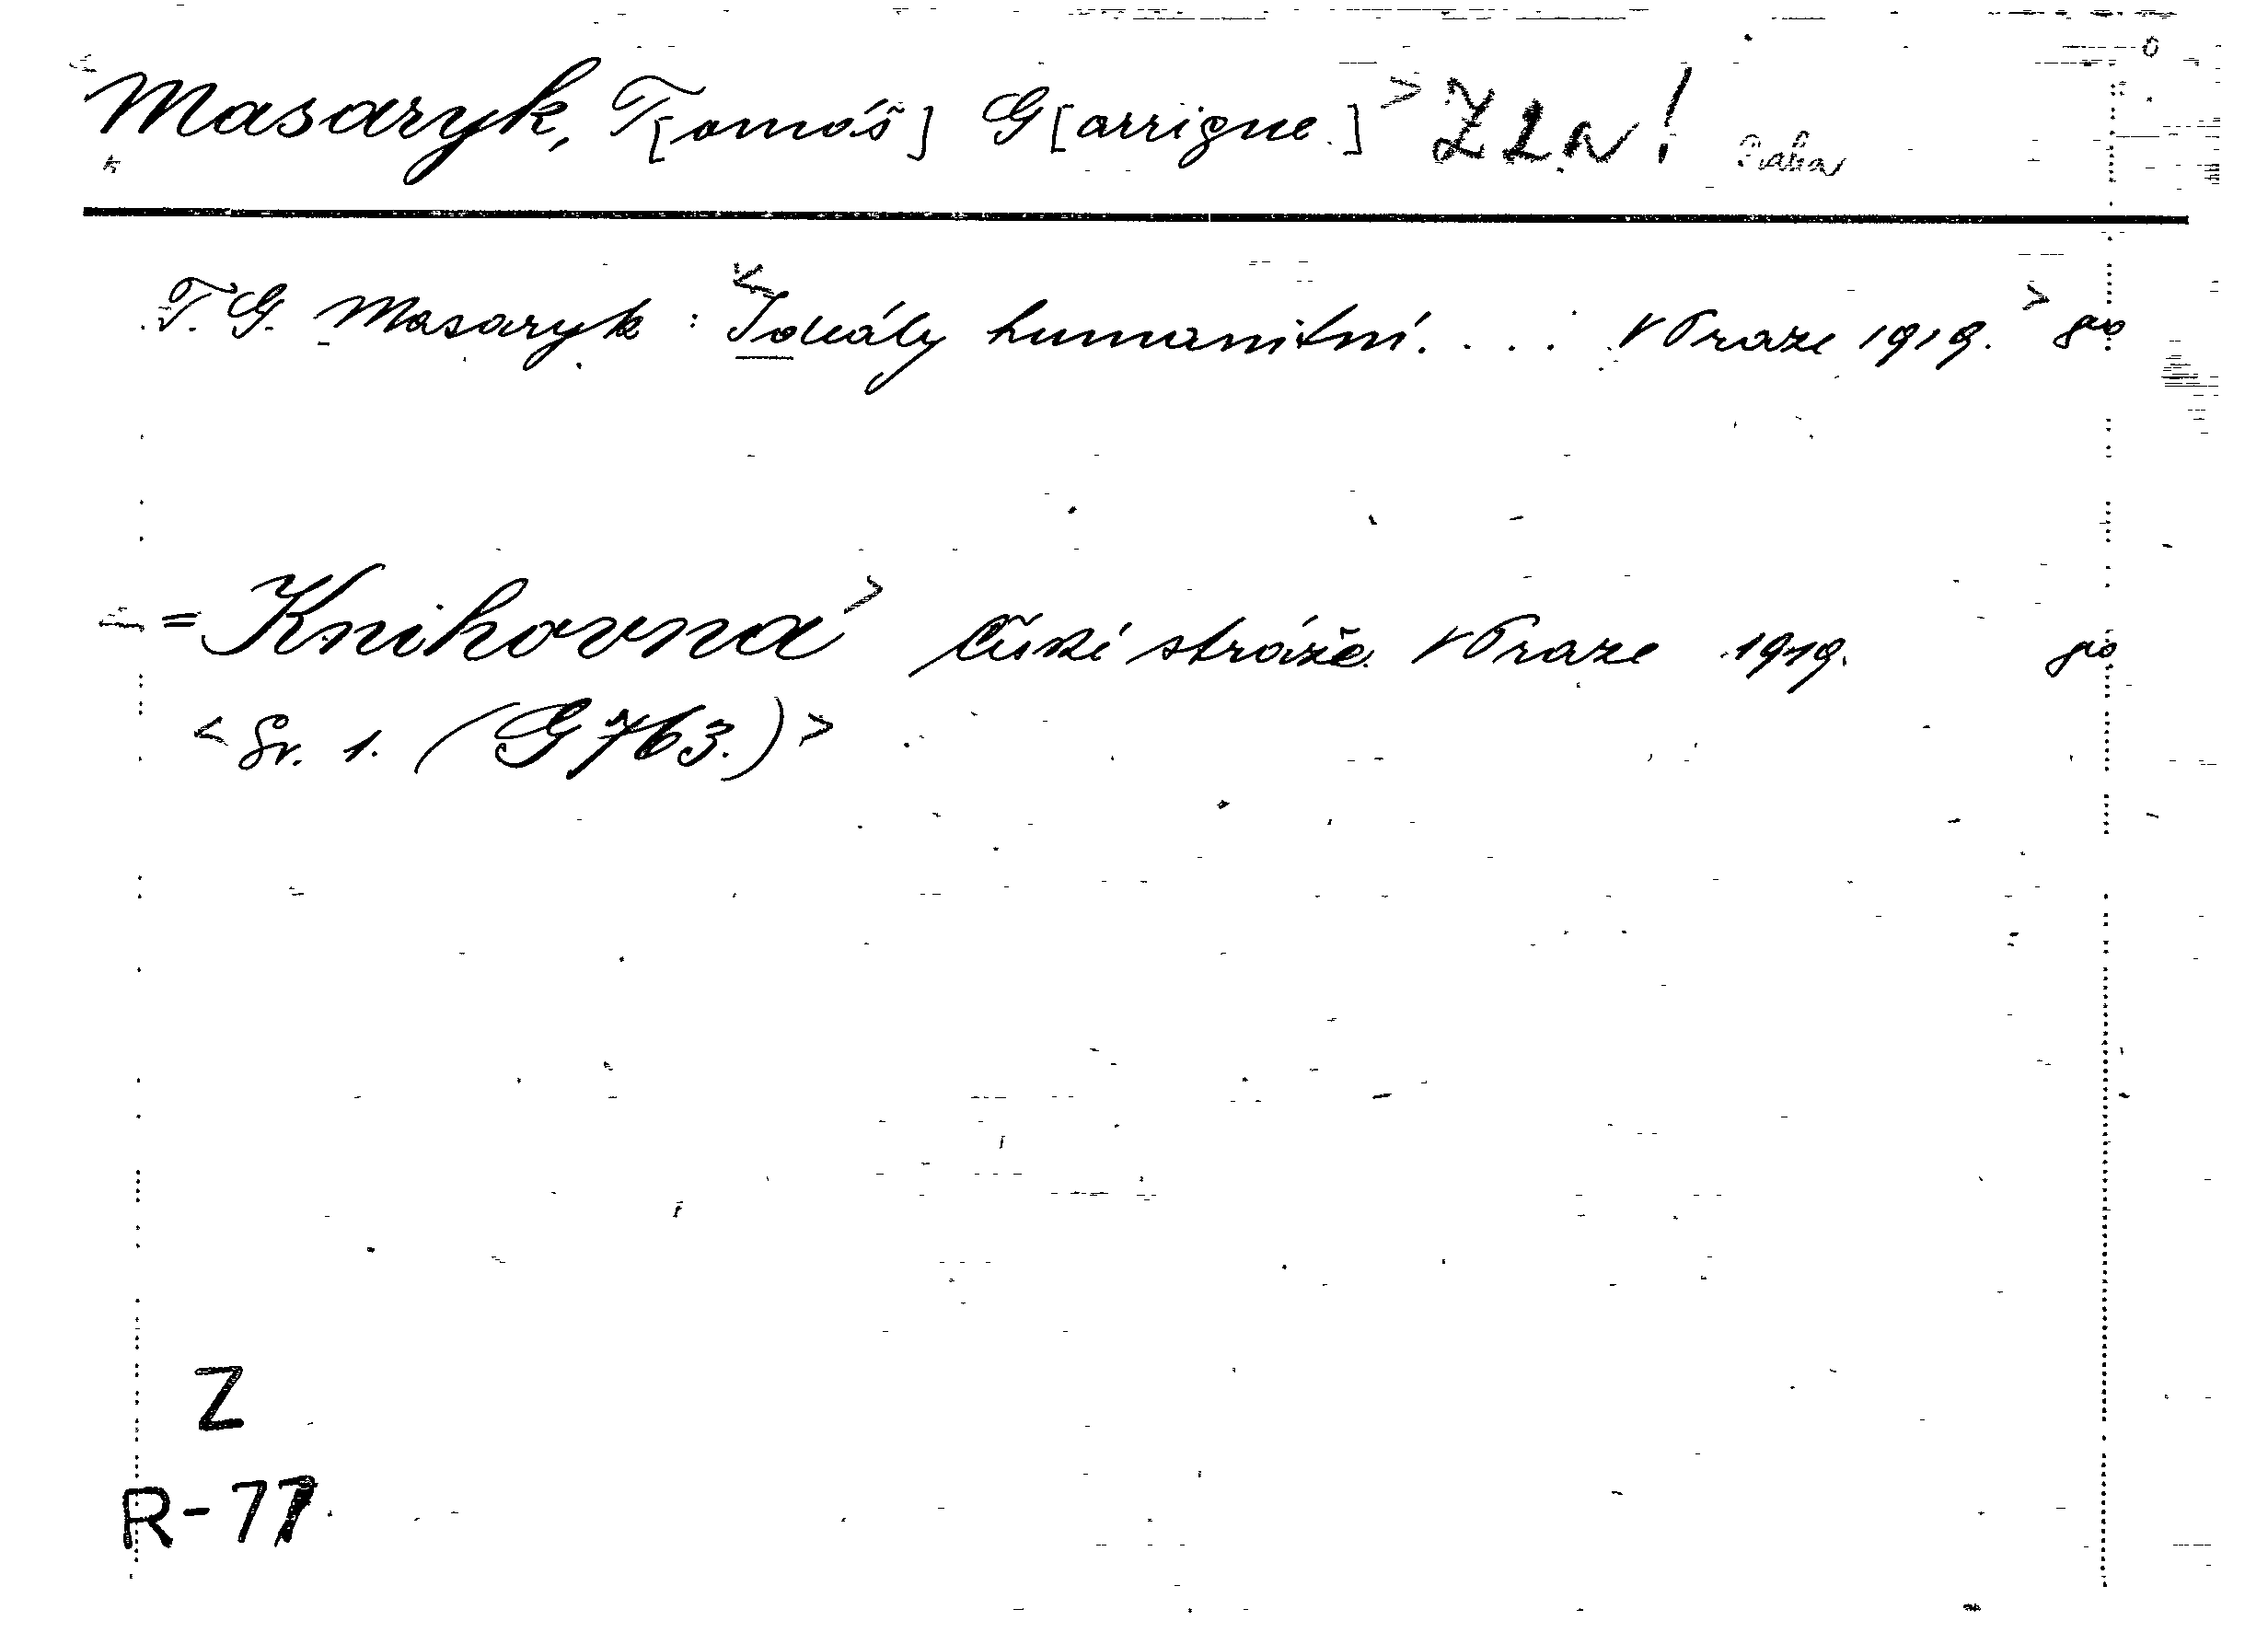 Masaryk, T[omáš] G[arrigue.]> Praha
T. G. Masaryk : <Ideály humanitní. . . . V Praze 1919.>
= Knihovna> České stráže. V Praze 1919.
<Sv. 1. (G 763.)>
Z
R-77